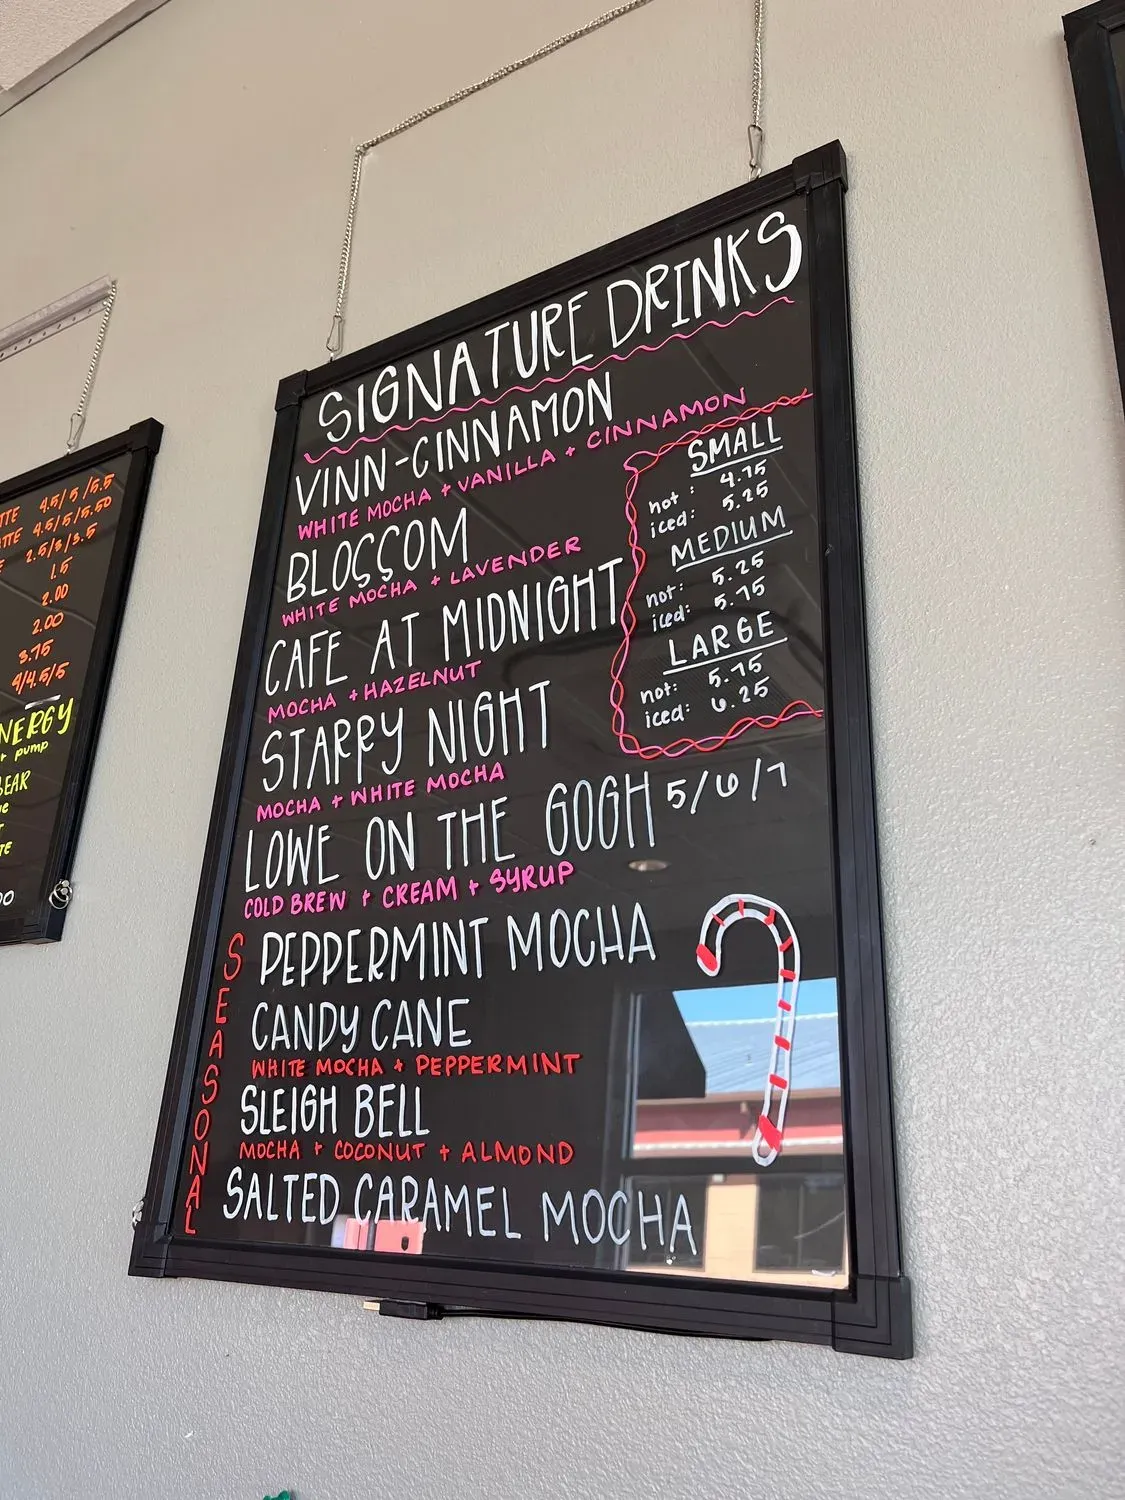 SIGNATURE DRINKS
VINN-CINNAMON
WHITE MOCHA + VANILLA + CINNAMON
BLOSSOM
WHITE MOCHA + LAVENDER
CAFE AT MIDNIGHT
MOCHA + HAZELNUT
STARRY NIGHT
MOCHA + WHITE MOCHA
LOWE ON THE GOGH 5/6/7
COLD BREW + CREAM + SYRUP
SMALL
hot: 4.75
iced: 5.25
MEDIUM
hot: 5.25
iced: 5.75
LARGE
hot: 5.75
iced: 6.25
SEASONAL
PEPPERMINT MOCHA
CANDY CANE
WHITE MOCHA + PEPPERMINT
SLEIGH BELL
MOCHA + COCONUT + ALMOND
SALTED CARAMEL MOCHA
4.5/5/5.5
4.5/5/5.50
2.5/3/3.5
1.5
2.00
2.00
3.75
4/4.5/5
+ pump